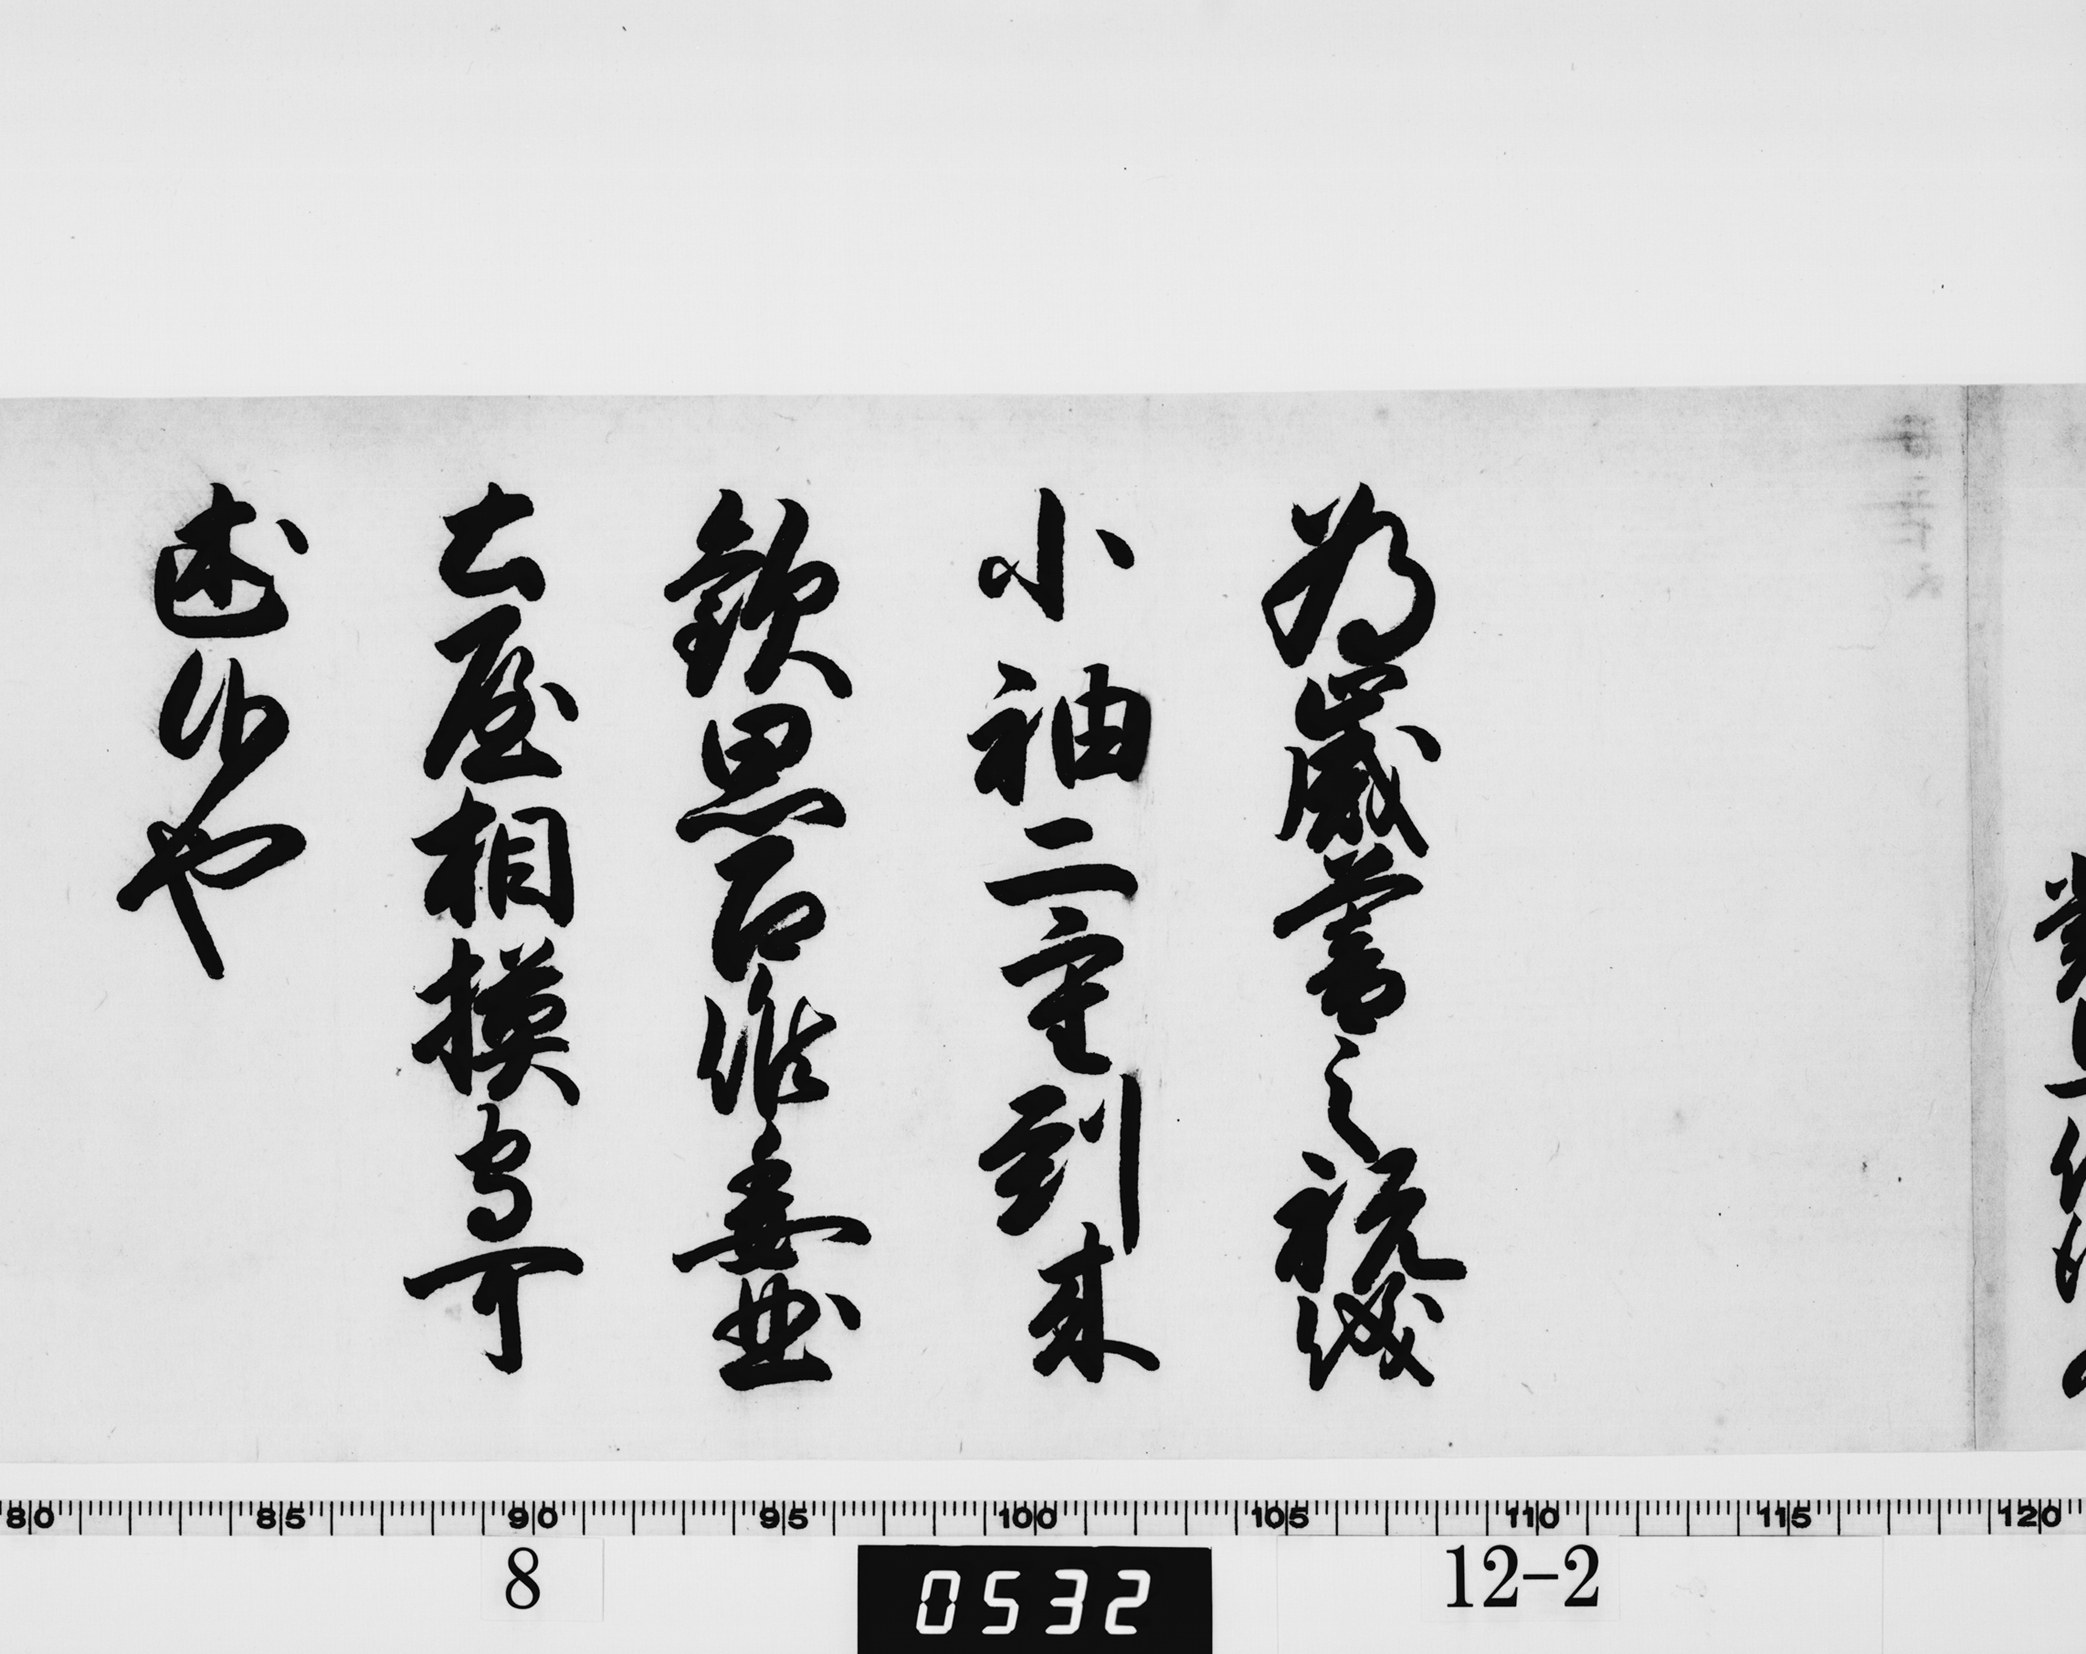 為歳暮之祝儀
小袖二重到来
歓思召候委曲
土屋相摸守可
述候也
80 85 90 95 100 105 110 115 120
8
0532
12-2